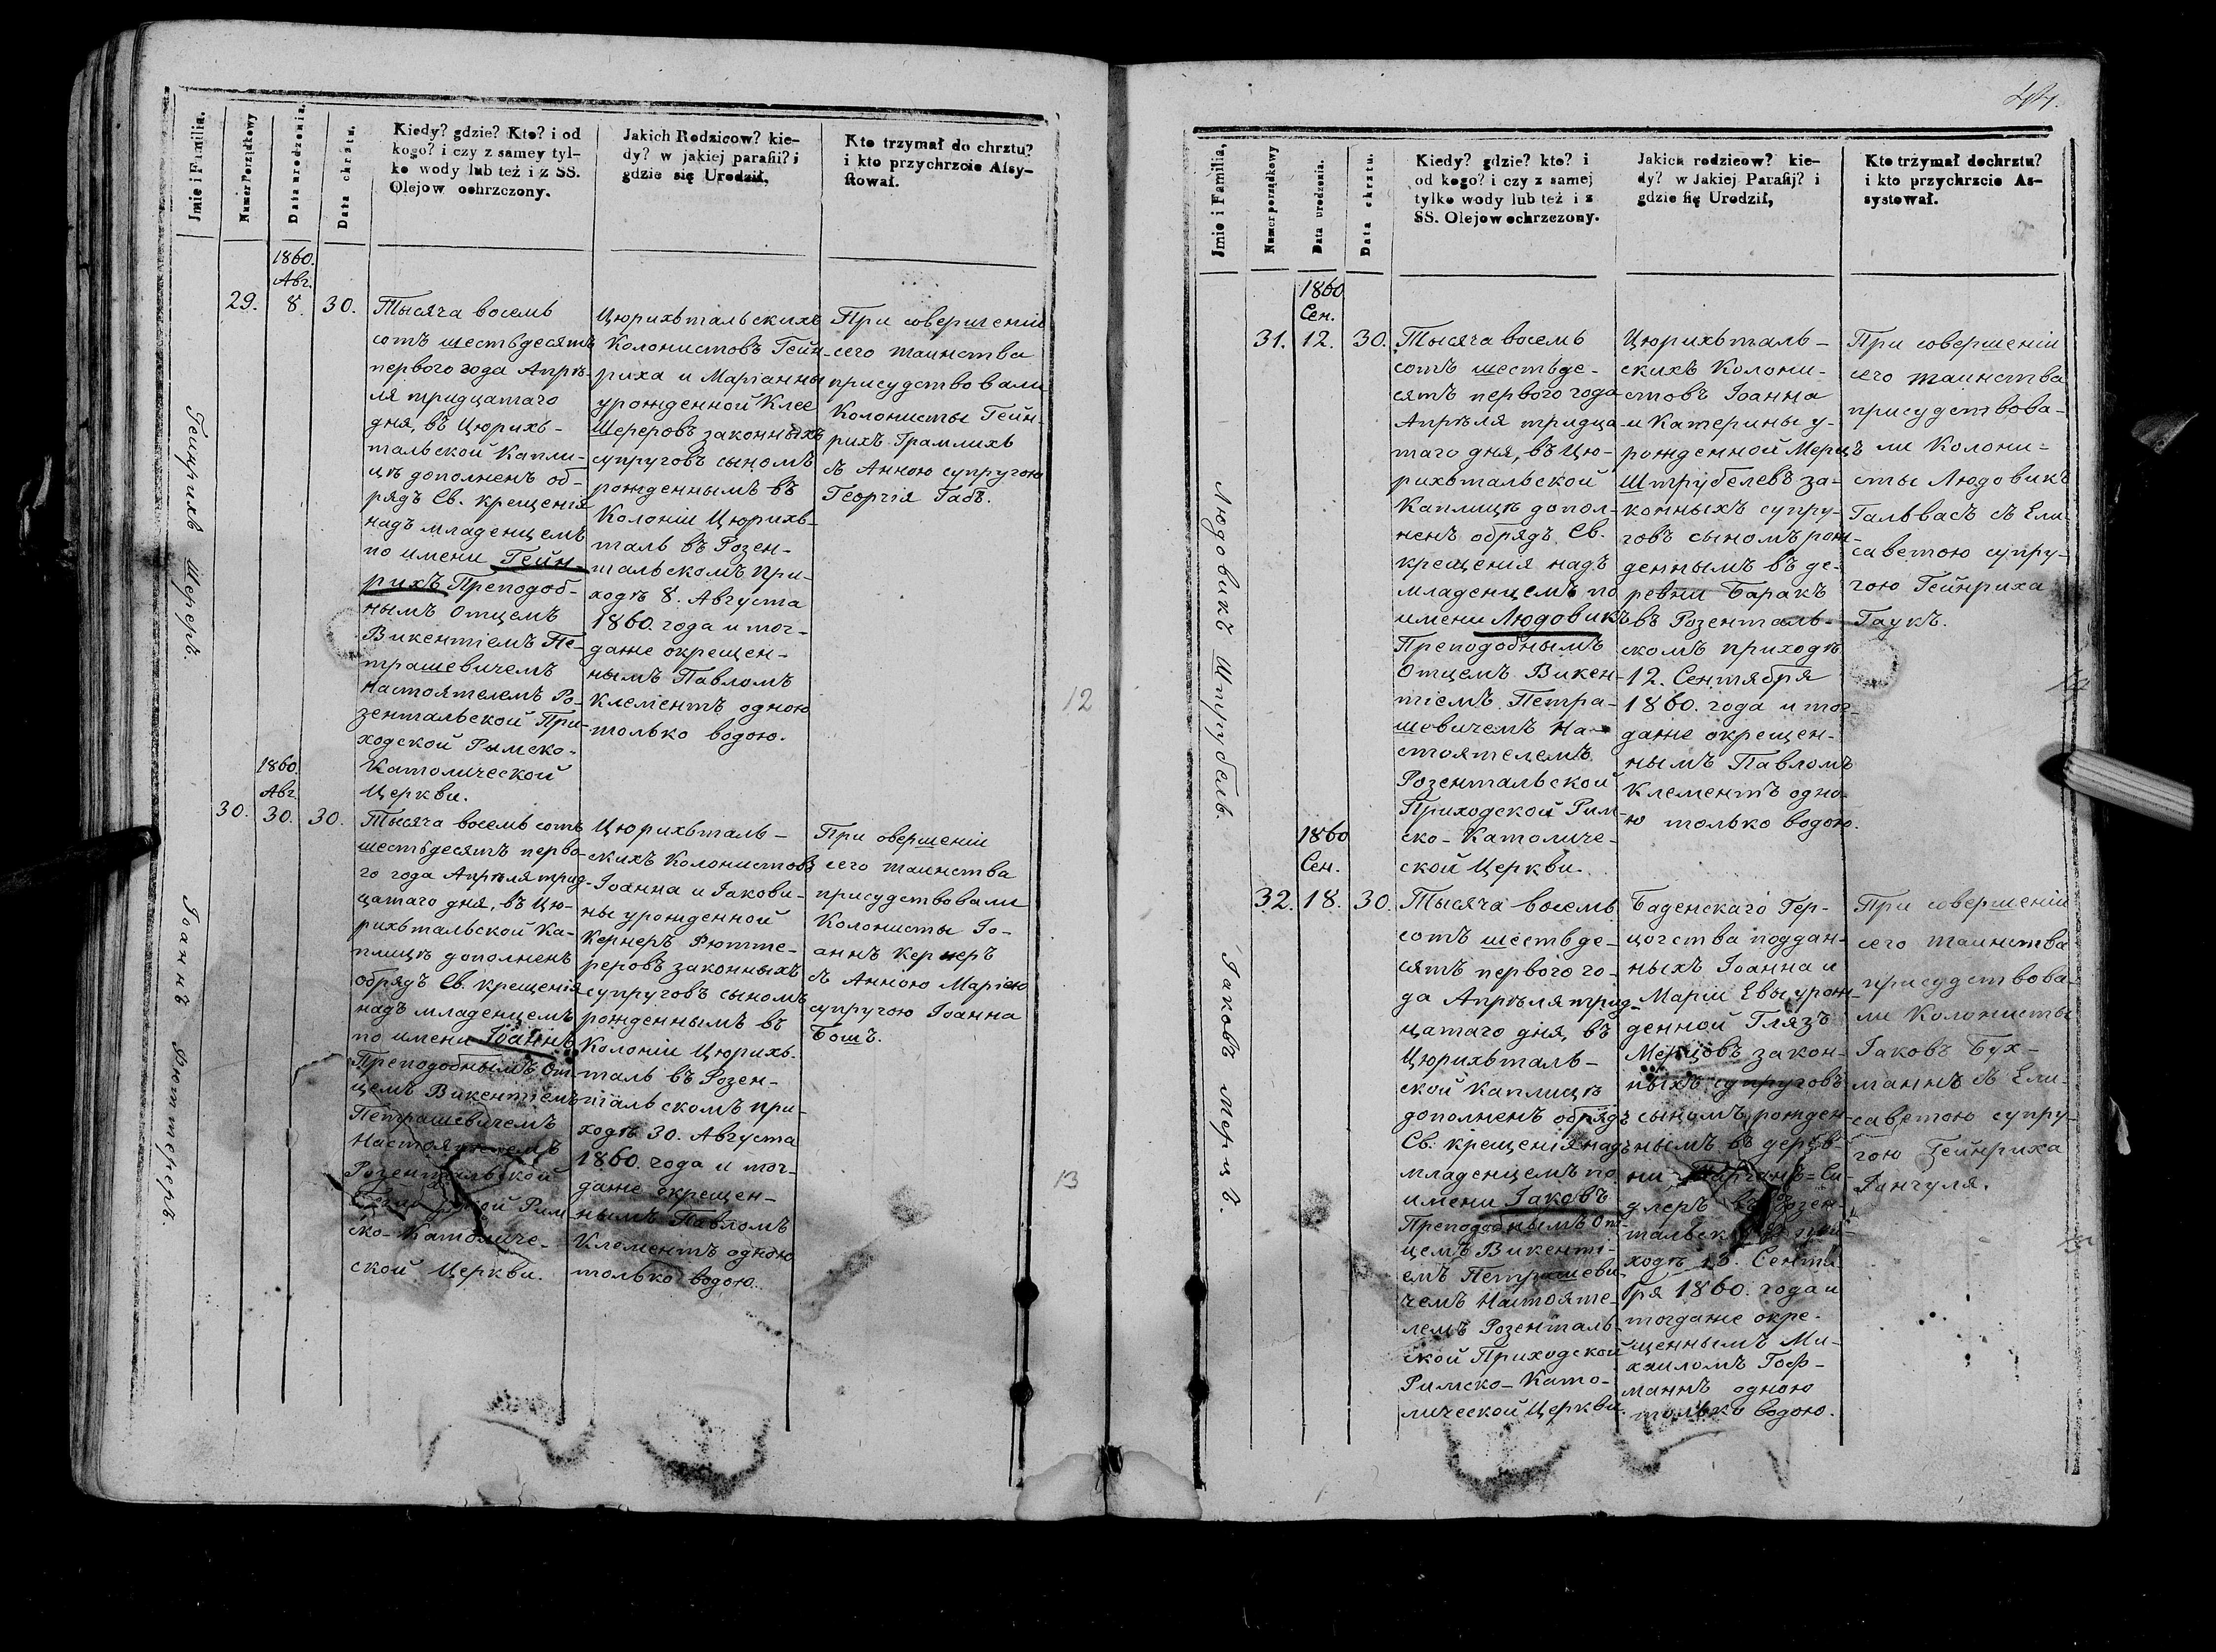 Jmie i Familia.
Numer Porządkowy
Data urodzenia.
Data chrztu.
Kiedy? gdzie? Kto? i od
kogo? i czy z samey tyl-
ko wody lub też i z SS.
Olejow ochrzczony.
Jakich Rodzicow? kie-
dy? w jakiej parafii? i
gdzie się Urodził,
Kto trzymał do chrztu?
i kto przychrzcie Assy-
stował.
Гейнрихъ Шереръ.
29.
1860.
Авг.
8.
30.
Тысяча восемь
сотъ шестьдесятъ
первого года Апрѣ-
ля тридцатаго
дня, въ Цюрихъ-
тальской Капли-
цѣ дополненъ об-
рядъ Св. крещенія
надъ младенцемъ
по имени Гейн-
рихъ Преподоб-
нымъ Отцемъ
Викентіемъ Пе-
трашевичемъ
Настоятелемъ Ро-
зентальской При-
ходской Римско-
Католической
Церкви.
Цюрихтальскихъ
Колонистовъ Гейн-
риха и Маріанны
урожденной Клее
Шереровъ законныхъ
супруговъ сыномъ
рожденнымъ въ
Колоніи Цюрихъ-
таль въ Розен-
тальскомъ При-
ходѣ 8. Августа
1860. года и тог-
даже окрещен-
нымъ Павломъ
Клементъ одною
только водою.
При совершеніи
сего таинства
присудствовали
Колонисты Гейн-
рихъ Грамлихъ
съ Анною супругою
Георгія Габъ.
Іоаннъ Рюттереръ.
30.
1860.
Авг.
30.
30.
Тысяча восемь сотъ
шестьдесятъ перво-
го года Апрѣля трид-
цатаго дня, въ Цю-
рихьтальской Ка-
плицѣ дополненъ
обрядъ Св. крещенія
надъ младенцемъ
по имени Іоаннъ
Преподобнымъ От-
цемъ Викентіемъ
Петрашевичемъ
Настоятелемъ
Розентальской
Рим-
ско-Католиче-
ской Церкви.
Цюрихьталь-
скихъ Колонистовъ
Іоанна и Іакови-
ны урожденной
Кернеръ Рютте-
реровъ законныхъ
супруговъ сыномъ
рожденнымъ въ
Колоніи Цюрихь-
таль въ Розен-
тальскомъ при-
ходѣ 30. Августа
1860. года и тог-
даже окрещен-
нымъ Павломъ
Клементъ одною
только водою.
При овершеніи
сего таинства
присудствовали
Колонисты Іо-
аннъ Кернеръ
съ Анною Маріею
супругою Іоанна
Бошъ.
12
13
Jmie i Familia,
Numer porządkowy
Data urodzenia.
Data chrztu.
Kiedy? gdzie? kto? i
od kogo? i czy z samej
tylko wody lub też i z
SS. Olejow ochrzczony.
Jakich rodzicow? kie-
dy? w Jakiej Parafij? i
gdzie się Urodził,
Kto trzymał dochrztu?
i kto przychrzcie As-
systował.
Людовикъ Штрубель.
31.
1860
Сен.
12.
30.
Тысяча восемь
сотъ шестьде-
сятъ первого года
Апрѣля тридца-
таго дня, въ Цю-
рихьтальской
Каплицѣ допол-
ненъ обрядъ Св.
крещенія надъ
младенцемъ по
имени Людовикъ
Преподобнымъ
Отцемъ Викен-
тіемъ Петра-
шевичемъ На-
стоятелемъ
Розентальской
Приходской Рим-
ско-Католиче-
ской Церкви.
Цюрихьталь-
скихъ Колони-
стовъ Іоанна
и Катерины у-
рожденной Мерцъ
Штрубелевъ за-
конныхъ супру-
говъ сыномъ рож-
деннымъ въ де-
ревни Баракъ
въ Розенталь-
скомъ приходѣ
12. Сентября
1860. года и тог-
даже окрещен-
нымъ Павломъ
Клементъ одно-
ю только водою.
При совершеніи
сего таинства
присудствова-
ли Колони-
сты Людовикъ
Гальвасъ съ Ели-
саветою супру-
гою Гейнриха
Гаукъ.
Іаковъ Мерцъ.
32.
1860
Сен.
18.
30.
Тысяча восемь
сотъ шестьде-
сятъ первого го-
да Апрѣля трид-
цатаго дня, въ
Цюрихьталь-
ской Каплицѣ
дополненъ обрядъ
Св. крещенія надъ
младенцемъ по
имени Іаковъ
Преподобнымъ От-
цемъ Викенті-
емъ Петрашеви-
чемъ Настояте-
лемъ Розенталь-
ской Приходской
Римско-Като-
лической Церкви.
Баденскаго Гер-
цогства поддан-
ныхъ Іоанна и
Маріи Евы урож-
денной Глязъ
Мерцовъ закон-
ныхъ супруговъ
сыномъ рожден-
нымъ въ дерев-
ни
въ Розен-
при-
ходѣ 18. Сентя-
бря 1860. года и
тогдаже окре-
щеннымъ Ми-
хаиломъ Гоф-
маннъ одною
только водою.
При совершеніи
сего таинства
присудствова-
ли Колонисты
Іаковъ Бух-
маннъ съ Ели-
саветою супру-
гою Гейнриха